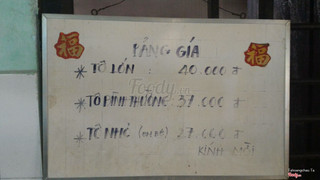 福 福
BẢNG GIÁ
* TÔ LỚN : 40.000 đ
Foody
* TÔ BÌNH THƯỜNG : 37.000 đ
* TÔ NHỎ : 27.000 đ
KÍNH MỜI